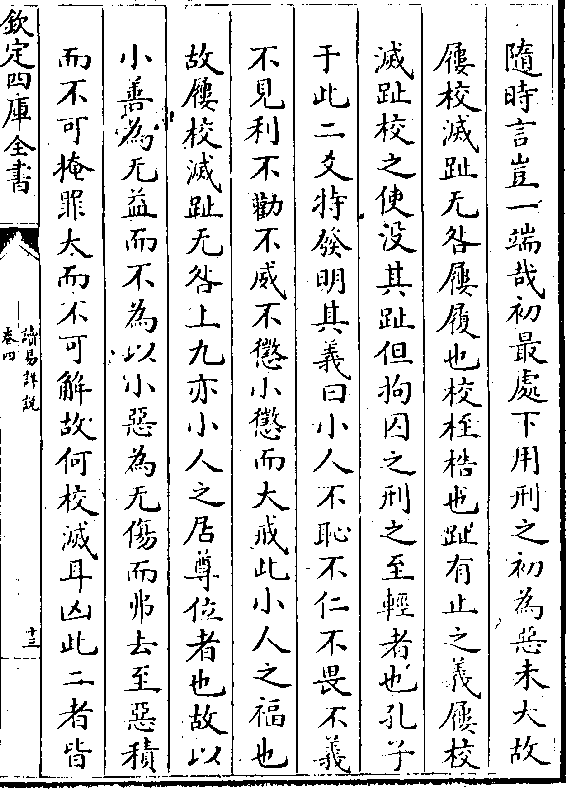 隨時言豈一端哉初最處下用刑之初為惡未大故
屨校滅趾无咎屨履也校桎梏也趾有止之義屨校
滅趾校之使没其趾但拘囚之刑之至輕者也孔子
于此二爻特發明其義曰小人不恥不仁不畏不義
不見利不勸不威不懲小懲而大戒此小人之福也
故屨校滅趾无咎上九亦小人之居尊位者也故以
小善為无益而不為以小惡為无傷而弗去至惡積
而不可掩罪大而不可解故何校滅耳凶此二者皆
欽定四庫全書
讀易詳說
卷四
十三